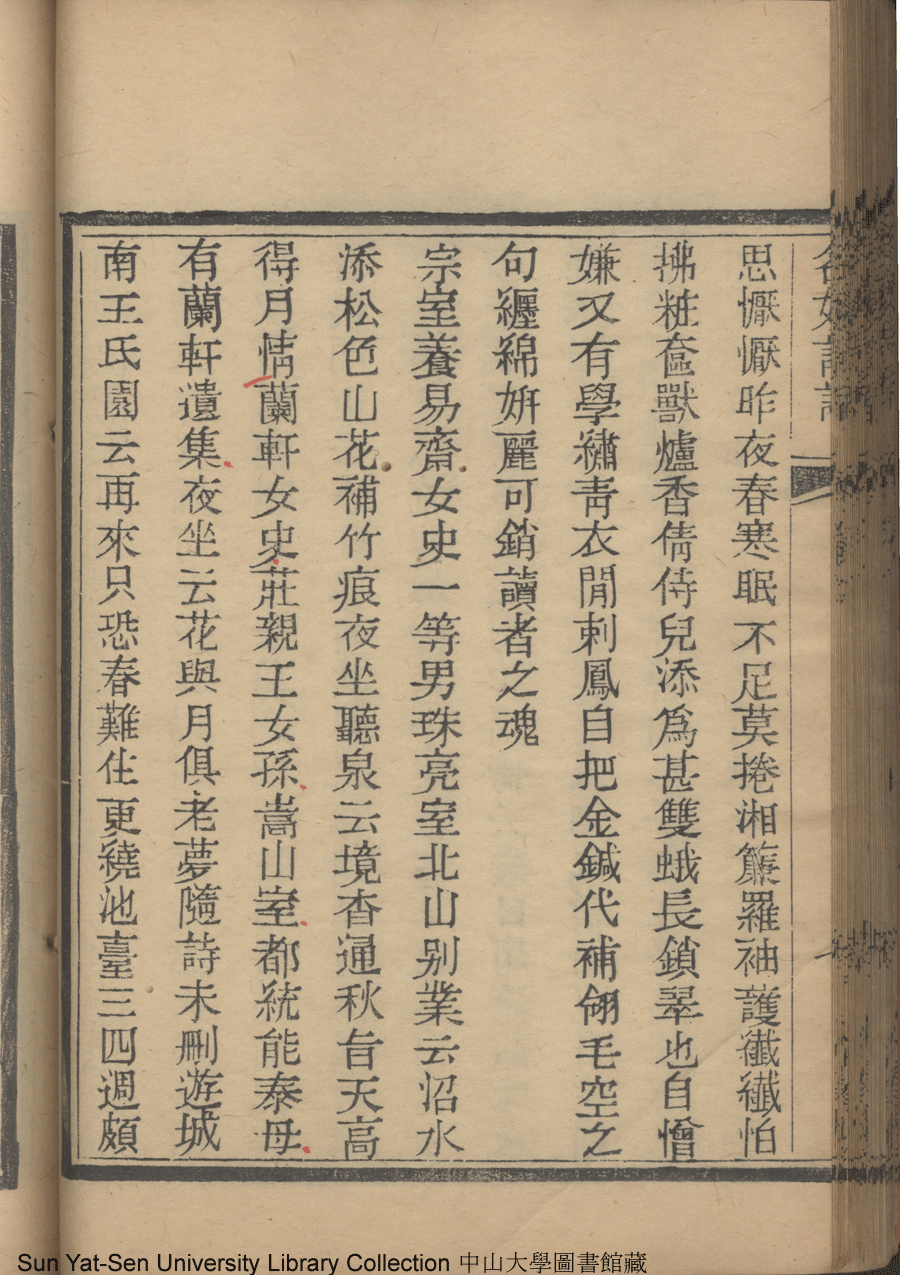 思懨懨昨夜春寒眠不足莫捲湘簾羅袖護纖纖怕
拂粧奩獸爐香倩侍兒添爲甚雙蛾長鎖翠也自憎
嫌又有學繡青衣閒刺鳳自把金鍼代補翎毛空之
句纏綿妍麗可銷讀者之魂
宗室養易齋女史一等男珠亮室北山別業云沼水
添松色山花補竹痕夜坐聽泉云境杳通秋旨天高
得月情蘭軒女史莊親王女孫嵩山室都統能泰母
有蘭軒遺集夜坐云花與月俱老夢隨詩未刪遊城
南王氏園云再來只恐春難住更繞池臺三四週頗
Sun Yat-Sen University Library Collection 中山大學圖書館藏